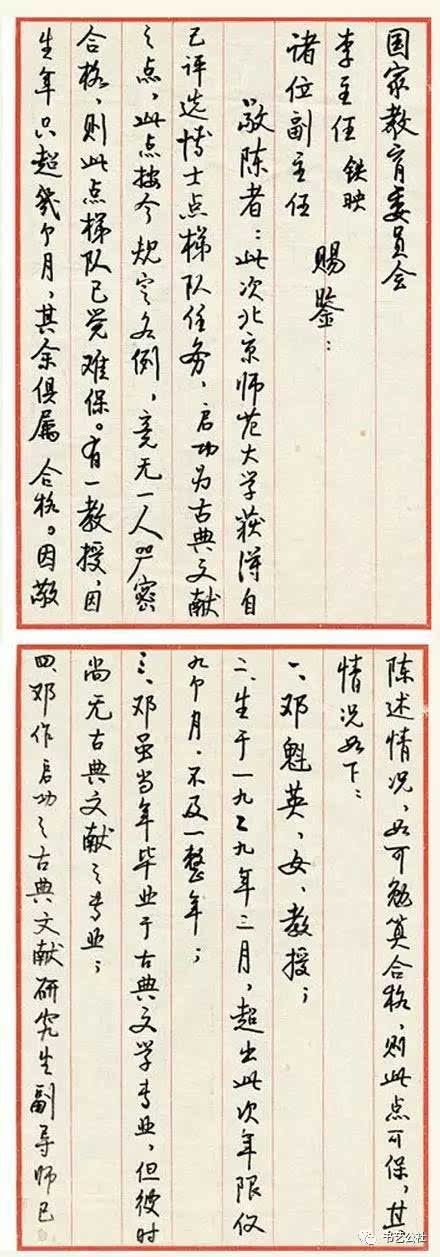 国家教育委员会
李主任 铁映
诸位副主任
赐鉴：
敬陈者：此次北京师范大学获得自
己评选博士点梯队任务，启功为古典文献
之点，此点按今规定各例，竟无一人严密
合格，则此点梯队已觉难保。有一教授，因
生年只超几个月，其余俱属合格。因敬
陈述情况，如可勉算合格，则此点可保，其
情况如下：
一、邓魁英，女，教授；
二、生于一九二九年三月，超出此次年限仅
九个月，不及一整年；
三、邓虽当年毕业于古典文学专业，但彼时
尚无古典文献之专业；
四、邓作启功之古典文献研究生副导师已
书艺公社